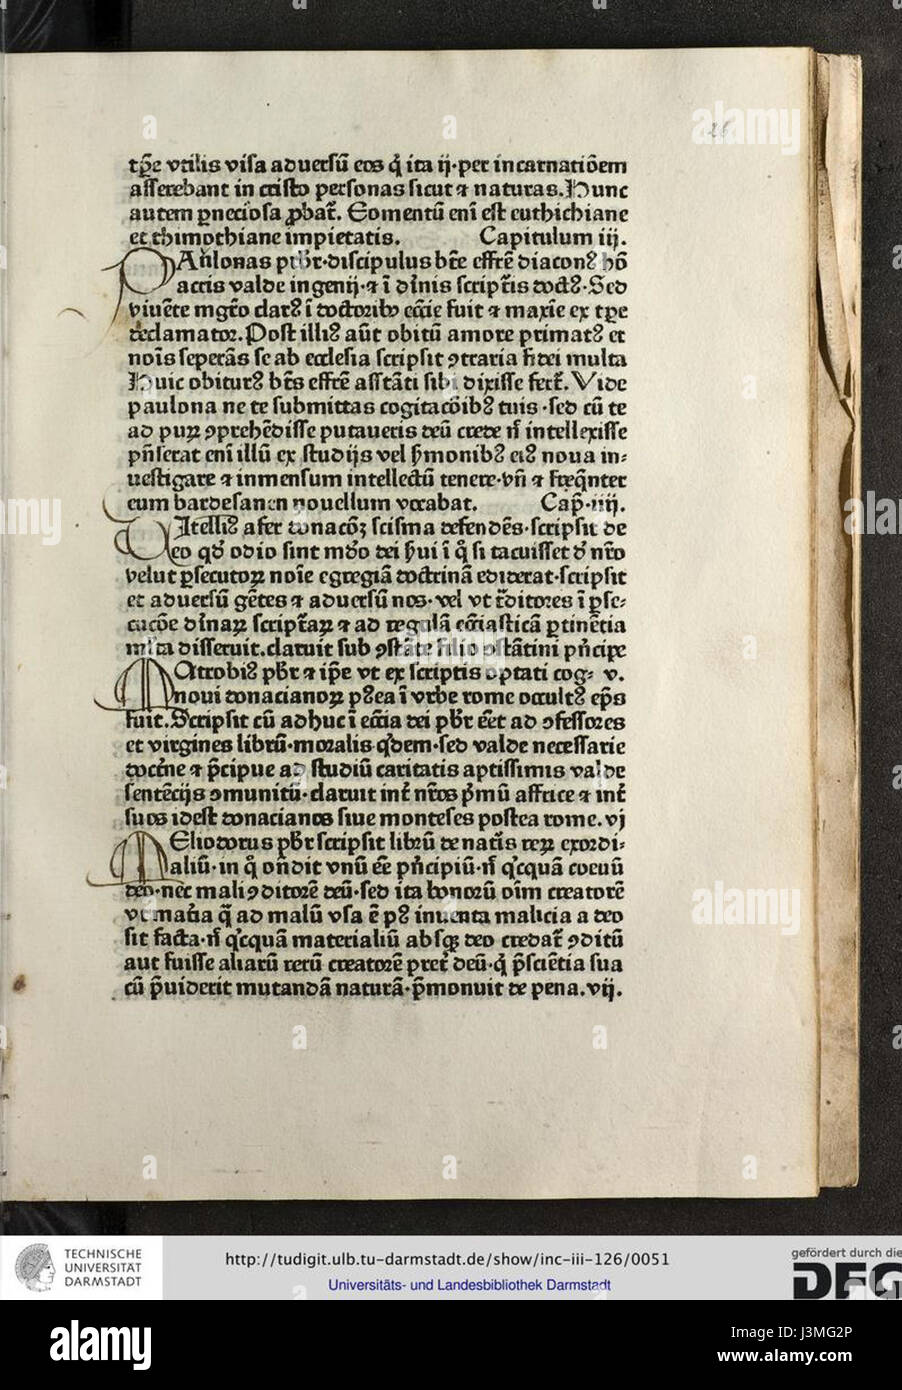 26
tp̄e vtilis visa aduersū eos q̇ ita ij·per incarnatiōem
asserebant in cristo personas sicut ⁊ naturas. Hunc
autem ꝑneciosa ꝓbat᷑. Somentū eni᷑ est euthichiane
et thimothiane impietatis. Capitulum iij.
PAulonas prb̄r·discipulus bt̄e effrē diacon⁹ hō
acris valde ingenij·⁊ ī diu̅nis script᷑is doct⁹·Sed
viuēte mgr̄o clar⁹ ī doctorib⁹ ecc̄ie fuit ⁊ maxīe ex tp̄e
declamator. Post illi⁹ aūt obitū amore primat⁹ et
nōis seperās se ab ecclesia scripsit ꝯtraria fidei multa
Huic obitur⁹ bt̄s effrē astāti sibi dixisse fert᷑. Vide
paulona ne te submittas cogitacōib⁹ tuis·sed cū te
ad puꝝ ꝯprehēdisse putaueris deū crede nō intellexisse
pn̄serat eni᷑ illū ex studijs vel sermonib⁹ ei⁹ noua in⸗
uestigare ⁊ inmensum intellectū tenere·vn̄ ⁊ freqn̄ter
eum bardesanen nouellum vocabat. Cap̄·iiij.
VItelli⁹ afer donacōꝝ scisma defendēs·scripsit de
eo qd̓ odio sint mūdo dei serui ī q̊ si tacuisset de nr̄o
velut ꝑsecutoꝝ noīe egregiā doctrinā ediderat·scripsit
et aduersū gētes ⁊ aduersū nos·vel vt t᷑ditores ī ꝑse⸗
cucōe diu̅naꝝ script᷑aꝝ ⁊ ad regulā ecc̄iasticā ꝑtinētia
multa disseruit. claruit sub ꝯstāte filio ꝯstātini pn̄cipe
MAtrobi⁹ pb̄r ⁊ ip̄e vt ex scriptis optati cog⸗ v.
noui donacianoꝝ p⁹ea ī vrbe rome occult⁹ ep̄s
fuit. Scripsit cū adhuc ī ecc̄ia dei pb̄r eēt ad ꝯfessores
et virgines librū·moralis qd̓em·sed valde necessarie
doct᷑ne ⁊ p̄cipue ad studiū caritatis aptissimis valde
sentēcijs ꝯmunitū·claruit int᷑ nr̄os p̄mū affrice ⁊ int᷑
suos idest donacianos siue monteses postea rome. vj
MEliodorus pb̄r scripsit librū de nat᷑is reꝝ exordi⸗
aliū·in q̊ on̄dit vnū eē pn̄cipiū·nō qͥcquā coeuū
deo·nec mali ꝯditorē deū·sed ita bonorū oīm creatorē
vt mat᷑ia q̄ ad malū vsa ē p⁹ inuenta malicia a deo
sit facta·nō qͥcquā materialiū absqꝫ deo credat᷑ ꝯditū
aut fuisse aliarū rerū creatorē pret᷑ deū·q̇ p̄sciētia sua
cū p̄uiderit mutandā naturā·p̄monuit de pena. vij.
TECHNISCHE
UNIVERSITÄT
DARMSTADT
http://tudigit.ulb.tu-darmstadt.de/show/inc-iii-126/0051
Universitäts- und Landesbibliothek Darmstadt
gefördert durch die
DFG
alamy
Image ID: J3MG2P
www.alamy.com